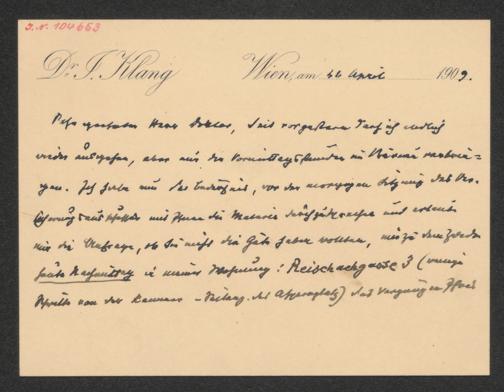 J.N. 104653
Dr. J. Klang Wien, am 22 April 1909.
Sehr geehrter Herr Doktor, Seit vorgestern darf ich endlich
wieder ausgehen, aber nur die Vormittagsstunden im
gen. Ich habe nun das Bedürfnis, vor der morgigen Sitzung des
mit Ihnen die Materie durchzusprechen und erlaube
mir die Anfrage, ob Sie nicht die Güte haben wollten, mir zu dem Zwecke
heute Nachmittag in meiner Wohnung: Reischachgasse 3 (wenige
Schritte von der des Aspernplatz) das Vergnügen Ihres